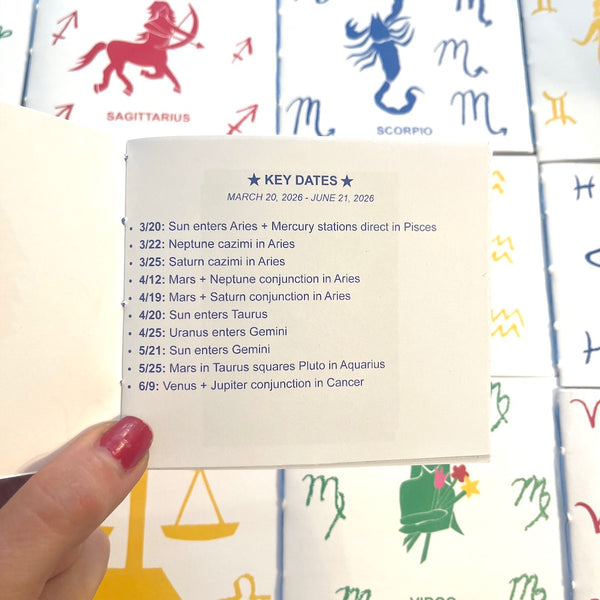 SAGITTARIUS
SCORPIO
★ KEY DATES ★
MARCH 20, 2026 - JUNE 21, 2026
• 3/20: Sun enters Aries + Mercury stations direct in Pisces
• 3/22: Neptune cazimi in Aries
• 3/25: Saturn cazimi in Aries
• 4/12: Mars + Neptune conjunction in Aries
• 4/19: Mars + Saturn conjunction in Aries
• 4/20: Sun enters Taurus
• 4/25: Uranus enters Gemini
• 5/21: Sun enters Gemini
• 5/25: Mars in Taurus squares Pluto in Aquarius
• 6/9: Venus + Jupiter conjunction in Cancer
VIRGO